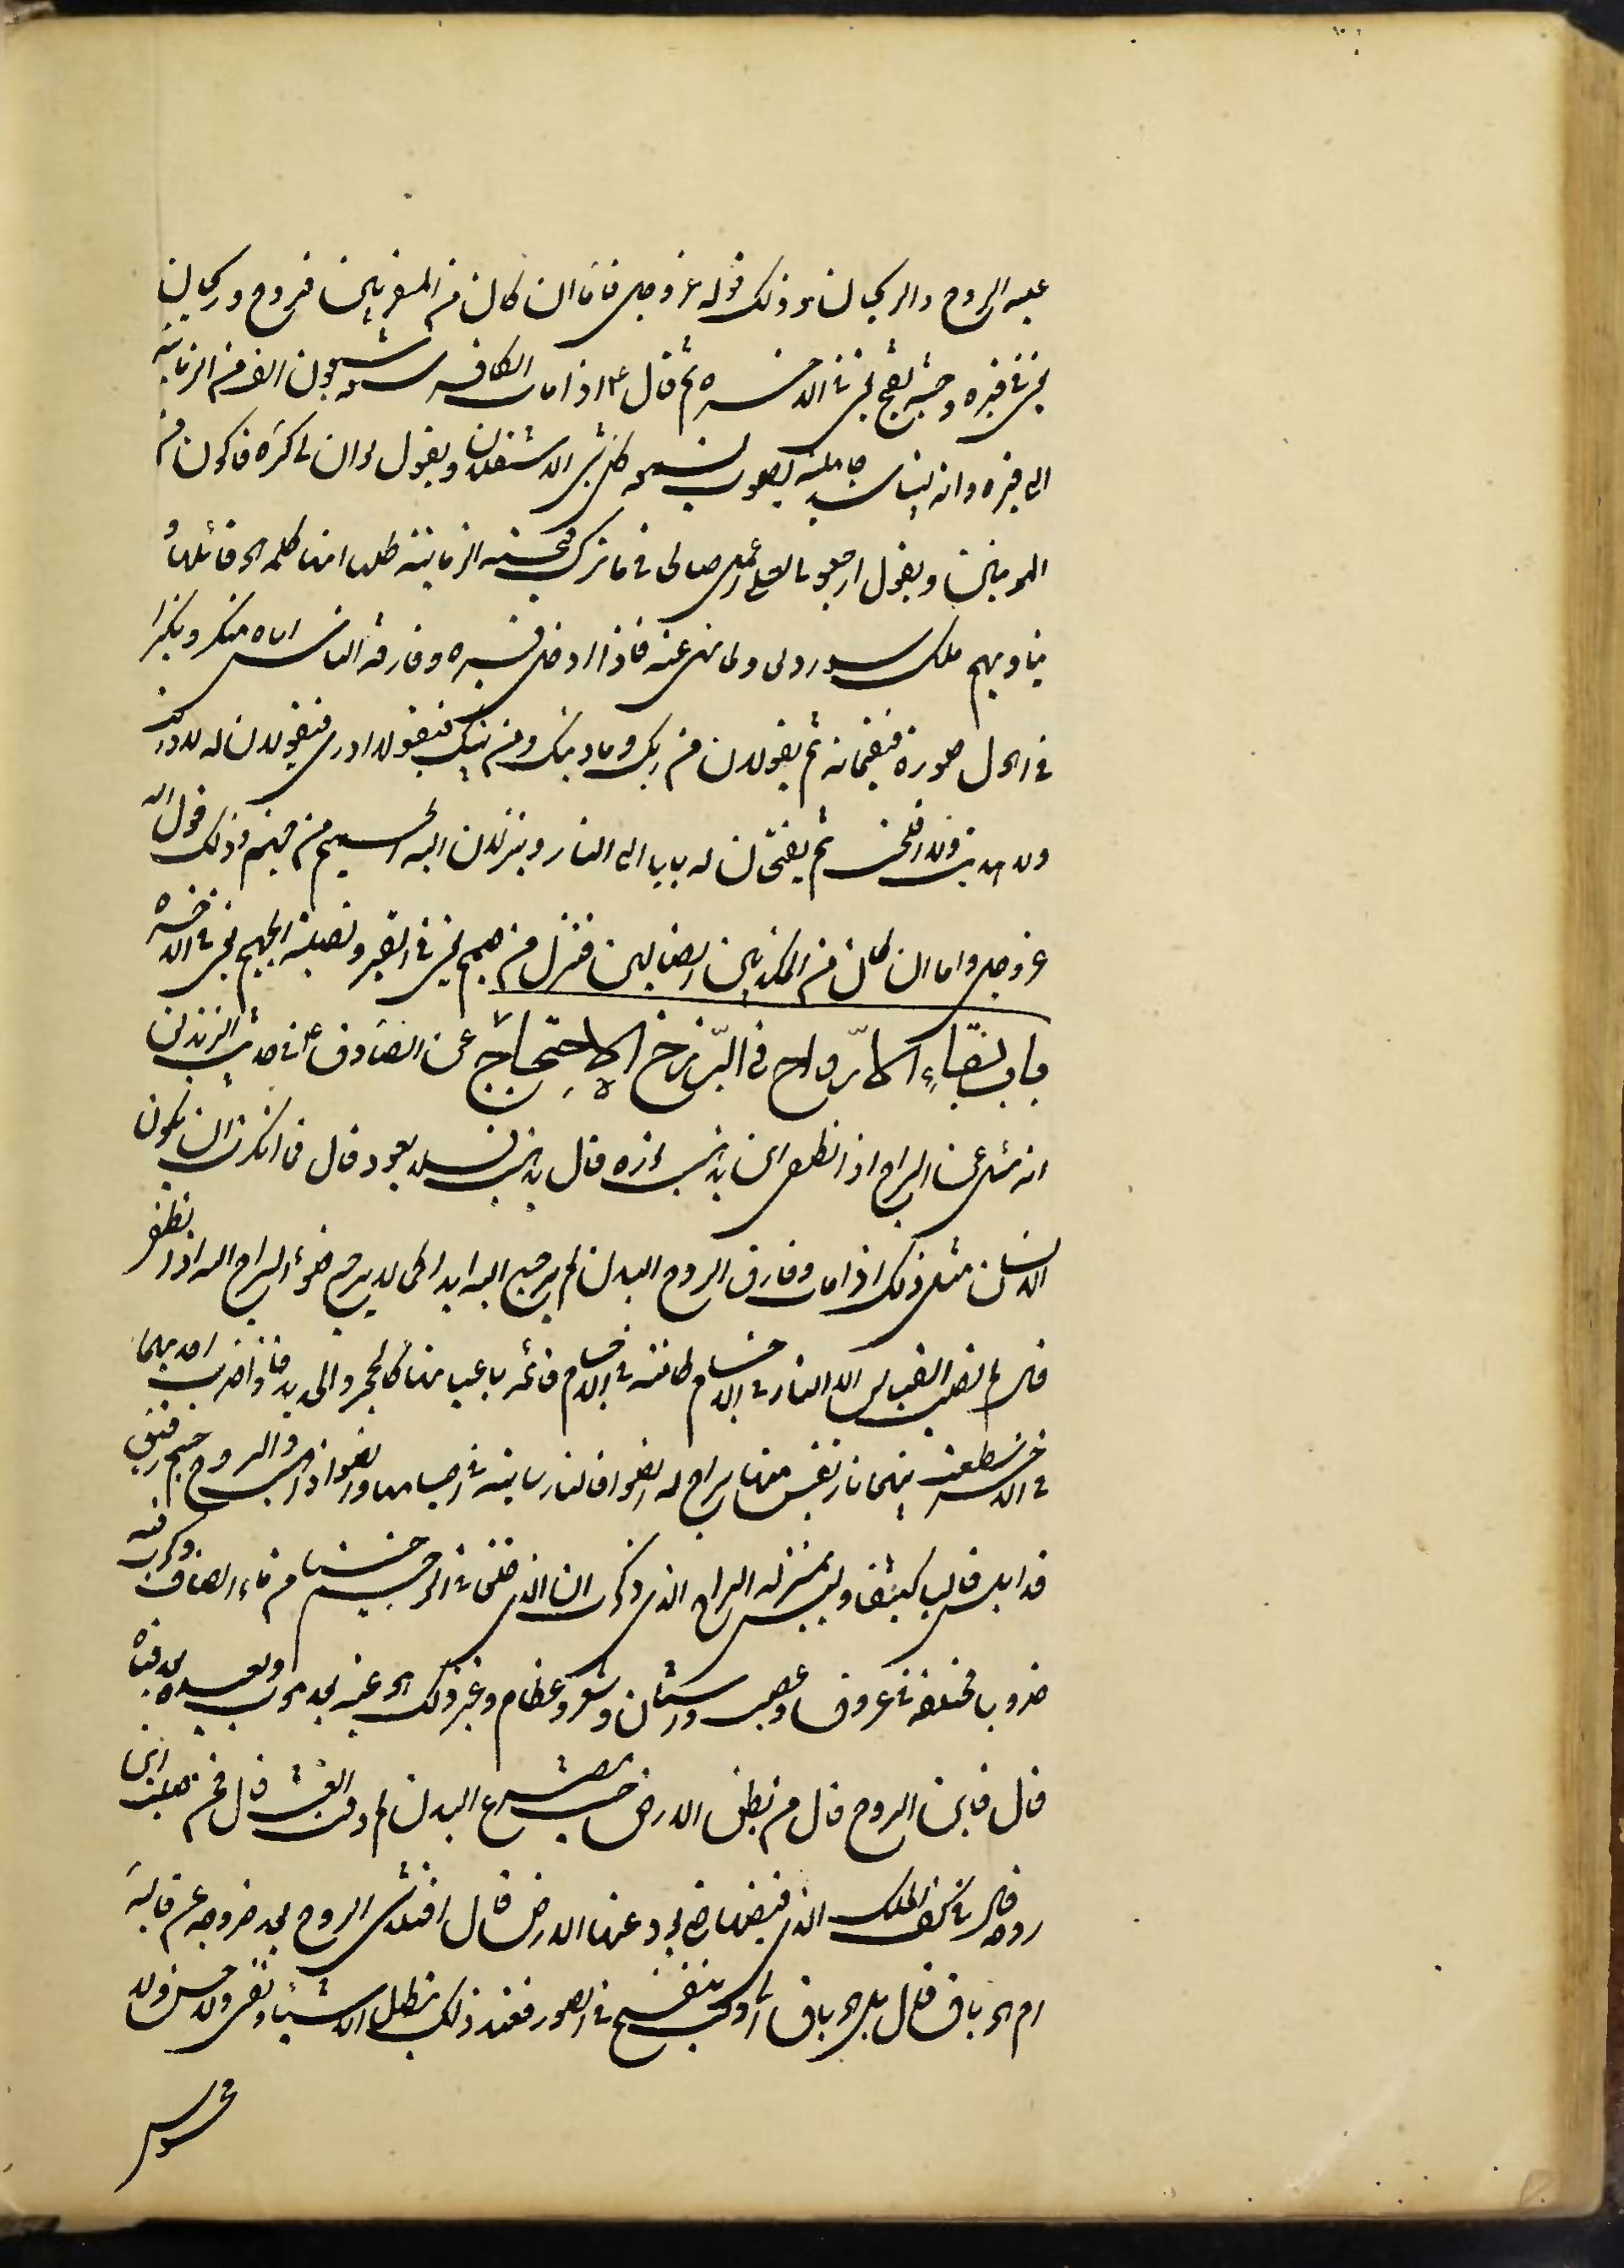 عليه الروح والريحان وذلك قوله عز وجل فاما ان كان من المقربين فروح وريحان
يعنى فى قبره وجنة نعيم يعنى فى الاخرة ثم قال ع اذا مات الكافر شيعه سبعون الف من الزبانية
الى قبره وانه ليناشد حامليه بصوت يسمعه كل شىء الا الثقلان ويقول لو ان لى كرة فاكون من
المومنين ويقول ارجعون لعلى اعمل صالحا فيما تركت فتجيبه الزبانية كلا انها كلمة هو قائلها و
يناديهم ملك لو رد لعاد لما نهى عنه فاذا ادخل قبره وفارقه الناس اتاه منكر ونكير
فى اهول صورة فيقيمانه ثم يقولان من ربك وما دينك ومن نبيك فيقول لا ادرى فيقولان له لا دريت
ولا هديت ولا افلحت ثم يفتحان له بابا الى النار وينزلان اليه الحميم من جهنم وذلك قول الله
عز وجل واما ان كان من المكذبين الضالين فنزل من حميم يعنى فى القبر وتصلية جحيم يعنى فى الاخرة
باب بقاء الارواح فى البرزخ الاحتجاج عن الصادق ع فى حديث الزنديق
انه سئل عن السراج اذا انطفى اين يذهب نوره قال يذهب فلا يعود قال فما انكرت ان يكون
الانسان مثل ذلك اذا مات وفارق الروح البدن لم يرجع اليه ابدا كما لا يرجع ضوء السراج اليه اذا انطفى
قال لم تصب القياس الا النار فى الاجسام كامنة والاجسام قائمة باعيانها كالحجر والحديد فاذا ضرب احديهما
فى الاخر سطعت بينهما نار تقتبس منها سراج له الضوء فالنار ثابتة فى اجسامها والضوء ذاهب والروح جسم رقيق
قد البس قالبا كثيفا وليس بمنزلة السراج الذى ذكرت ان الذى خلق فى الرحم جنينا من ماء صاف وركب فيه
ضروبا مختلفة من عروق وعصب واسنان وشعر وعظام وغير ذلك هو يحييه بعد موته ويعيده بعد فنائه
قال فاين الروح قال من بطن الارض حيث مصرع البدن الى وقت البعث قال فمن صلب اين
روحه قال فى كف الملك الذى قبضها حتى يودعها الارض قال افيتلاشى الروح بعد خروجه عن قالبه
ام هو باق قال بل هو باق الى وقت ينفخ فى الصور فعند ذلك تبطل الاشياء وتفنى ولا حس ولا
محسوس